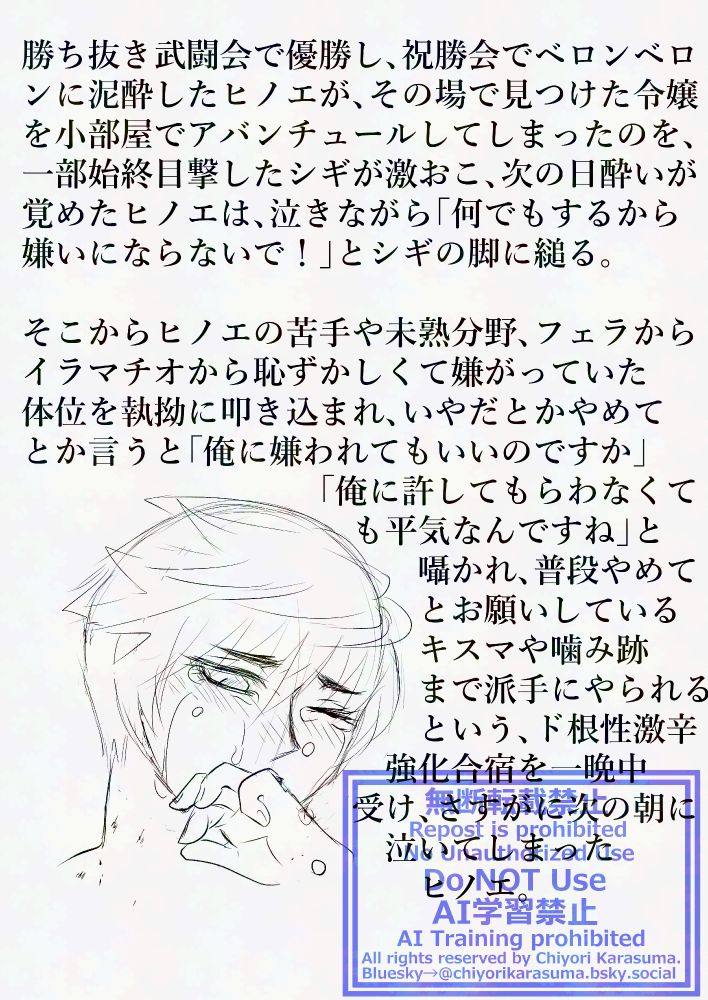 勝ち抜き武闘会で優勝し、祝勝会でベロンベロ
ンに泥酔したヒノエが、その場で見つけた令嬢
を小部屋でアバンチュールしてしまったのを、
一部始終目撃したシギが激おこ、次の日酔いが
覚めたヒノエは、泣きながら「何でもするから
嫌いにならないで！」とシギの脚に縋る。
そこからヒノエの苦手や未熟分野、フェラから
イラマチオから恥ずかしくて嫌がっていた
体位を執拗に叩き込まれ、いやだとかやめて
とか言うと「俺に嫌われてもいいのですか」
「俺に許してもらわなくて
も平気なんですね」と
囁かれ、普段やめて
とお願いしている
キスマや噛み跡
まで派手にやられる
という、ド根性激辛
強化合宿を一晩中
受け、さすがに次の朝に
泣いてしまった
ヒノエ。
無断転載禁止
Repost is prohibited
No Unauthorized Use
Do NOT Use
AI学習禁止
AI Training prohibited
All rights reserved by Chiyori Karasuma.
Bluesky→@chiyorikarasuma.bsky.social